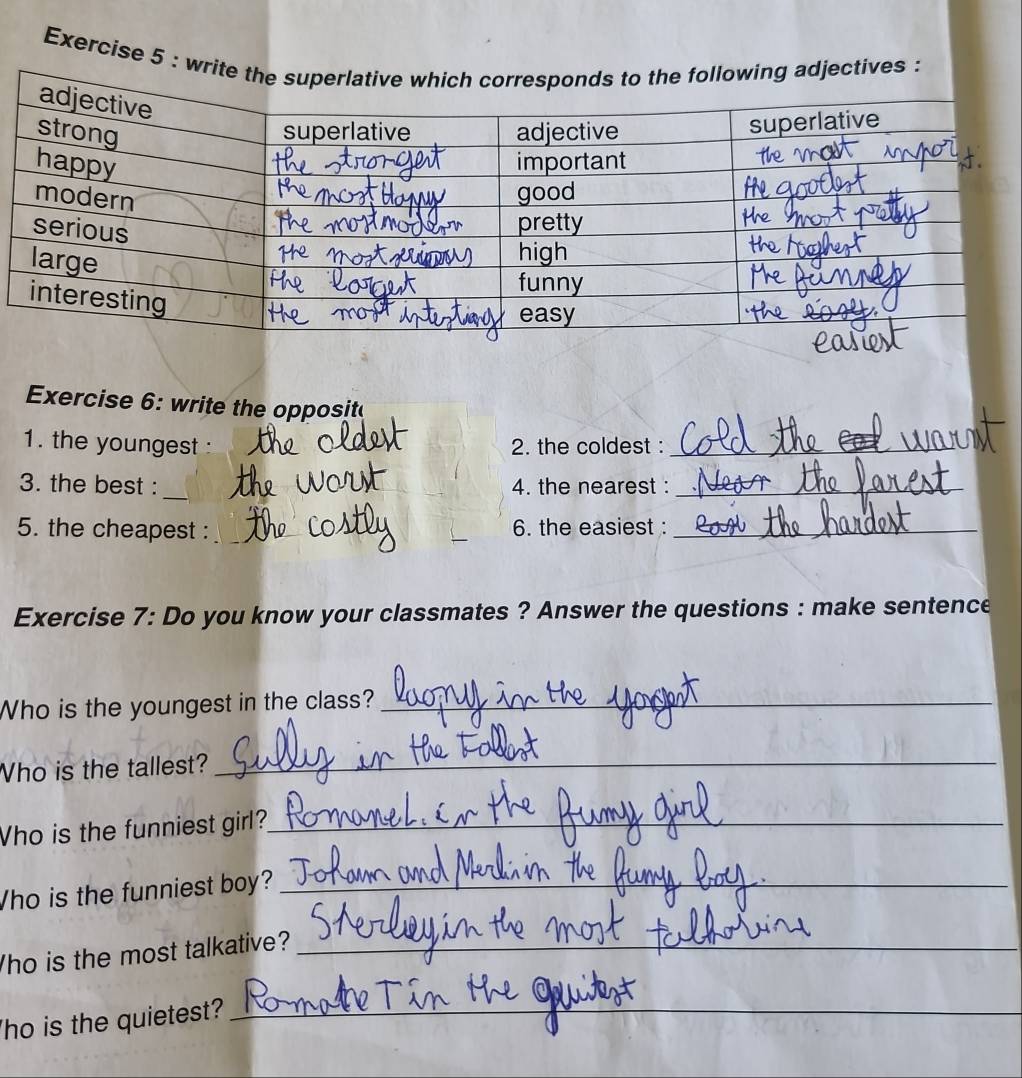 Exercise 5 : write the superlative which corresponds to the following adjectives :
adjective superlative adjective superlative
strong the strongest important the most import.
happy the most Happy good the goodest
modern the most modern pretty the most pretty
serious the most serious high the hoghest
large the largest funny the funney
interesting the most intesting easy the easy.
easiest
Exercise 6: write the opposit
1. the youngest : the oldest 2. the coldest : Cold the warmst
3. the best : the worst 4. the nearest : Near the farest
5. the cheapest : the costly 6. the easiest : easi the hardest
Exercise 7: Do you know your classmates ? Answer the questions : make sentence
Who is the youngest in the class? in the yongest
Who is the tallest? Sully in the tallest
Who is the funniest girl? Romane L. in the funny girl
Who is the funniest boy? Johann and Merlin in the funny boy.
Who is the most talkative? in the most
Who is the quietest? Romane T in the quitest